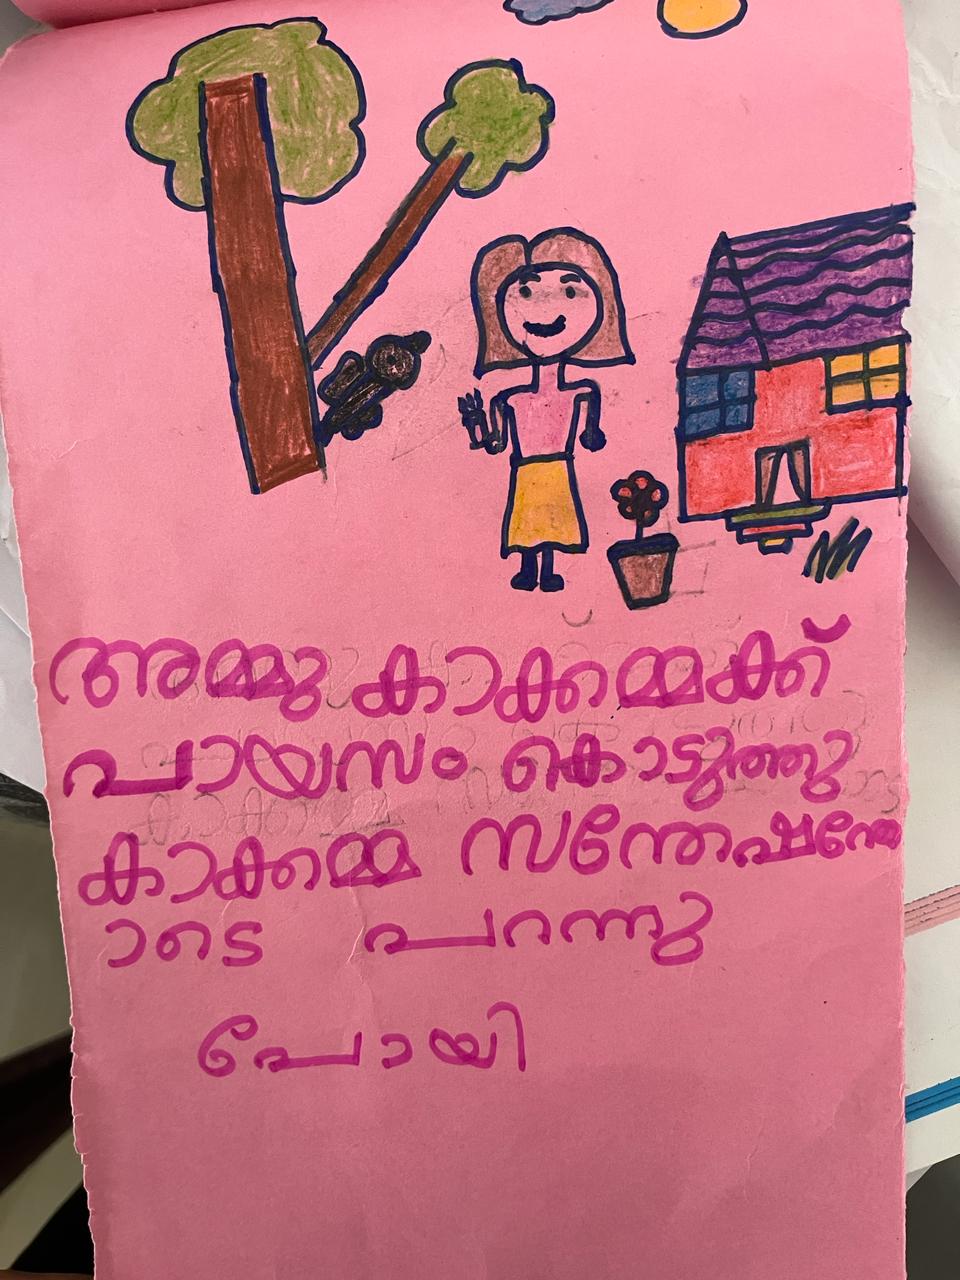 അമ്മു കാക്കമ്മക്ക്
പായസം കൊടുത്തു
കാക്കമ്മ സന്തേഷന്തേ
ാടെ പറന്നു
പോയി